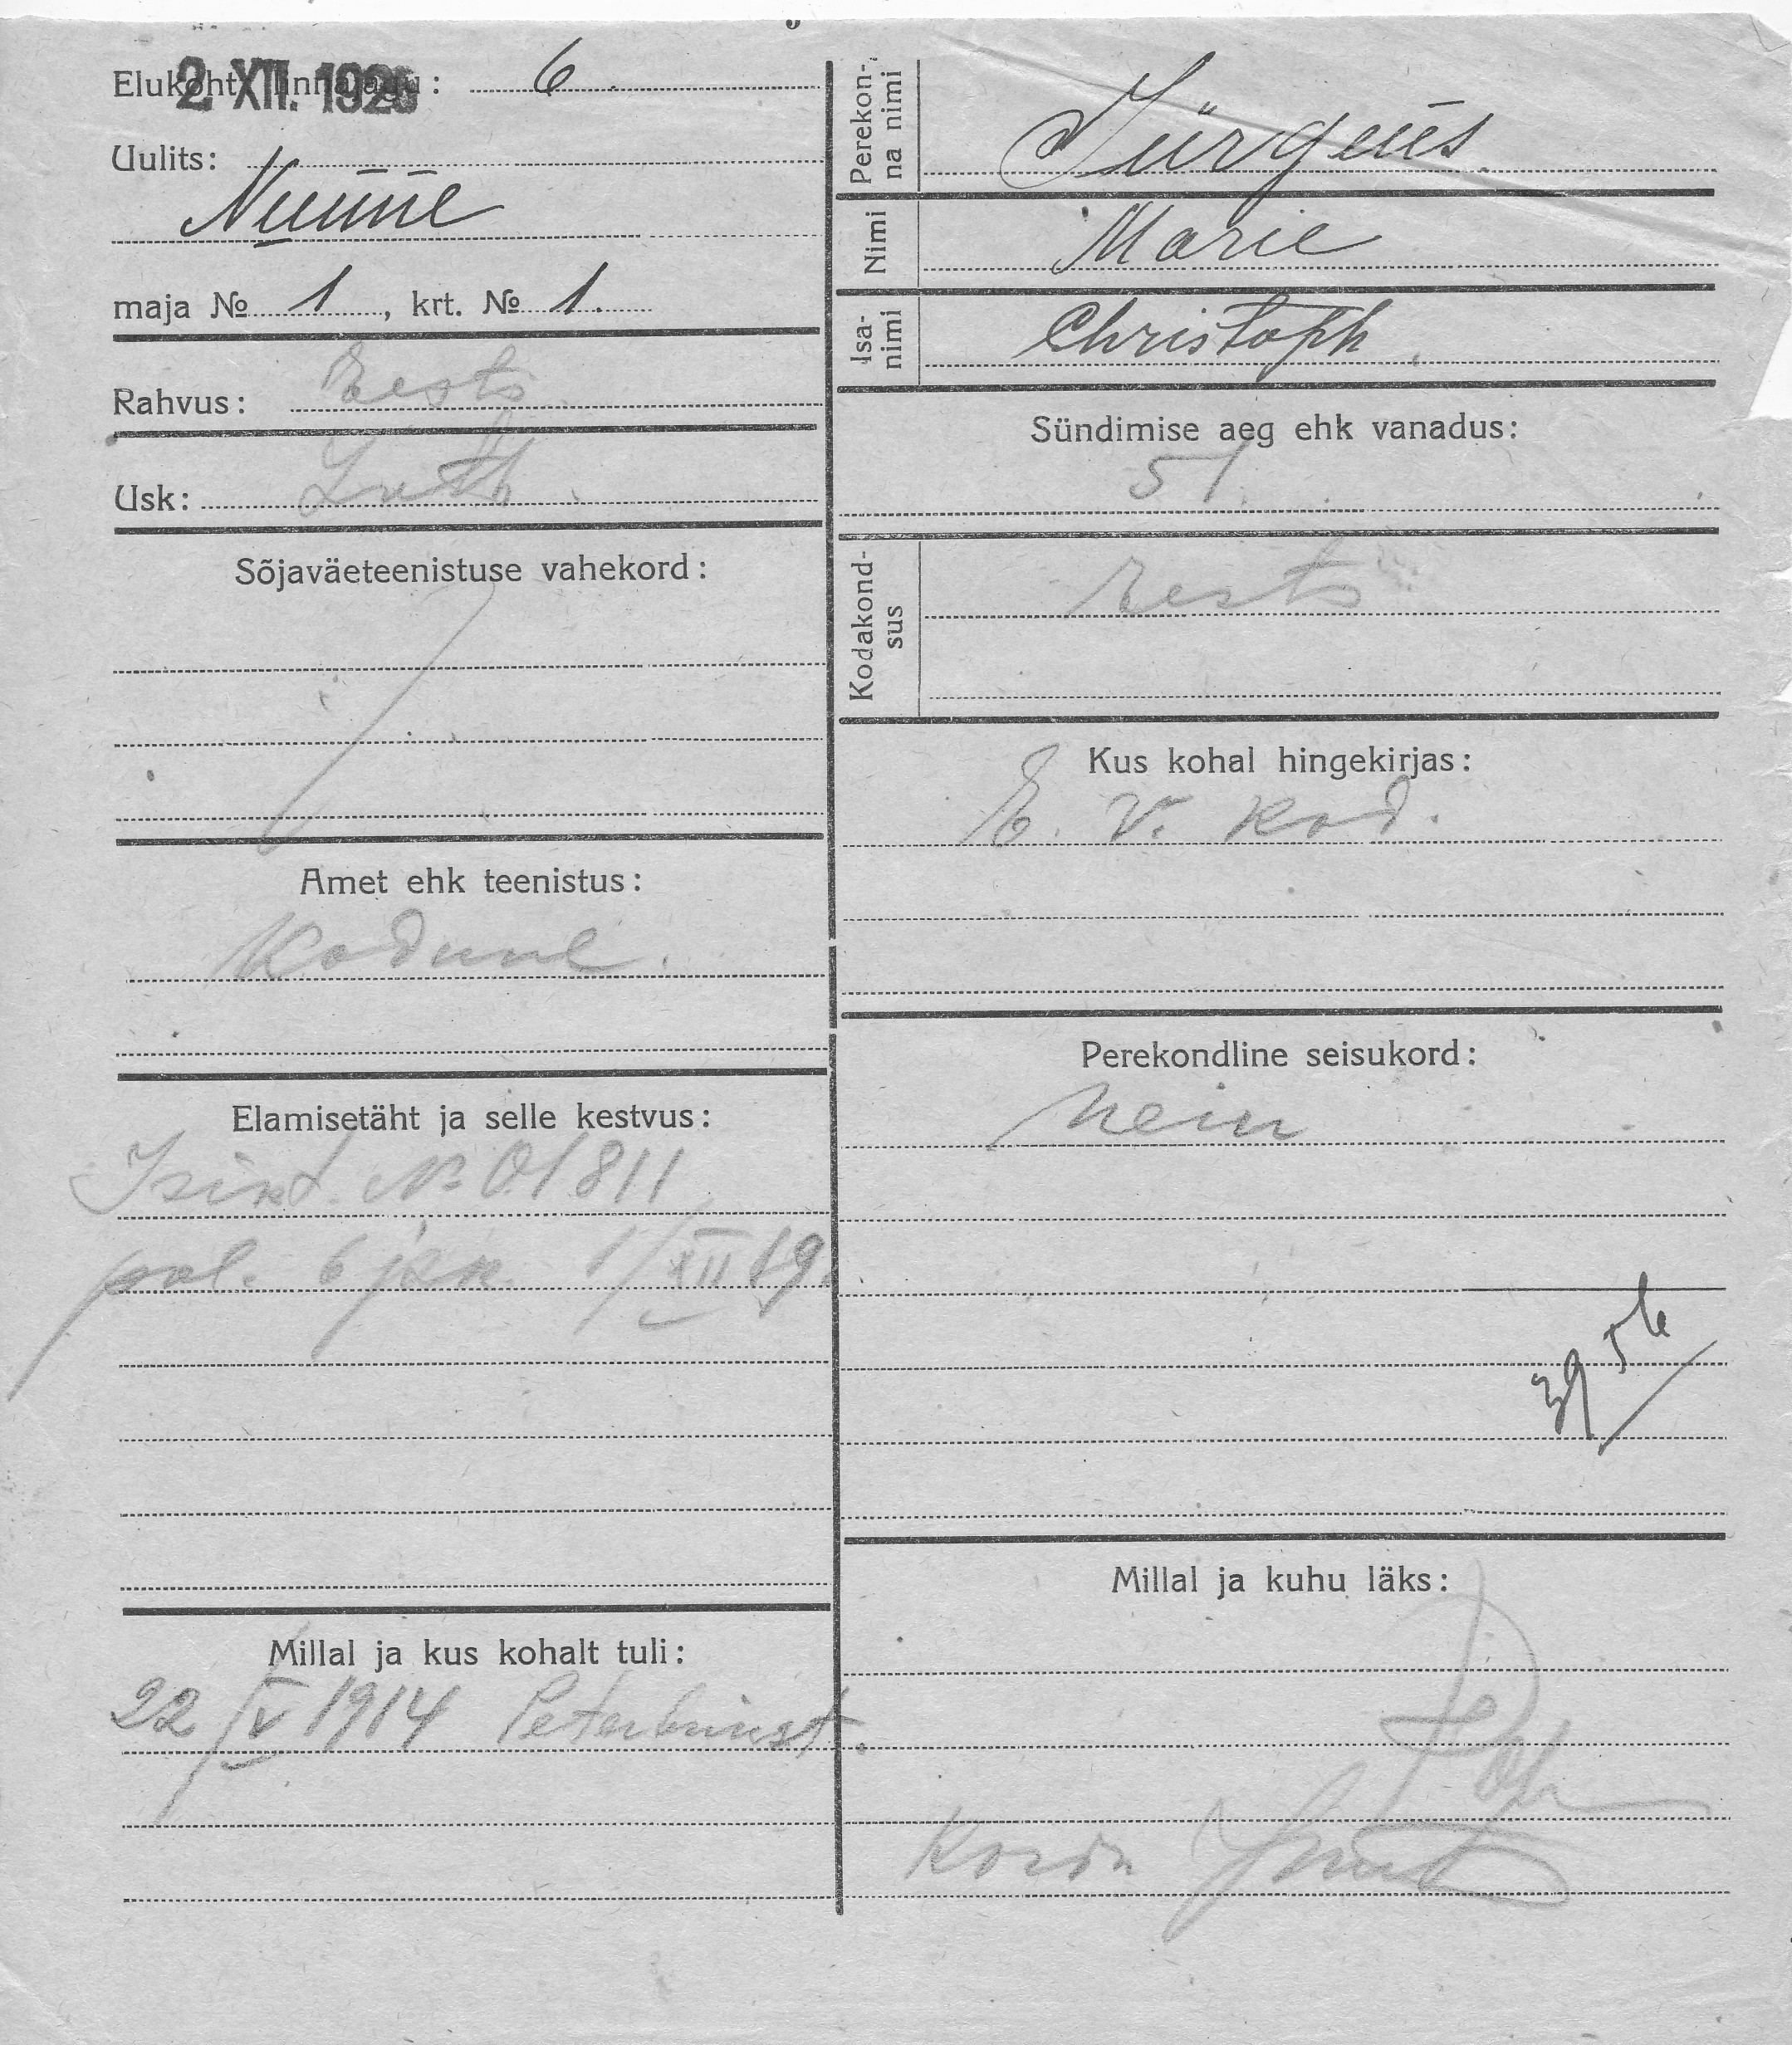 2 XII. 1926
Elukoht linnajagu: 6.
Uulits:
Numme
maja № 1, krt. № 1.
Rahvus: Eesti
Usk: Luth.
Sõjaväeteenistuse vahekord:
Amet ehk teenistus:
Kodune.
Elamisetäht ja selle kestvus:
Isikt. № 01811
pol. 6 jsk. 1/XII 19
Millal ja kus kohalt tuli:
22/V 1914 Peterburist.
Perekonna nimi
Jürgens
Nimi Marie
Isanimi Christoph
Sündimise aeg ehk vanadus:
51.
Kodakondsus Eesti
Kus kohal hingekirjas:
E. V. kod.
Perekondline seisukord:
Neiu
Millal ja kuhu läks:
Kordn